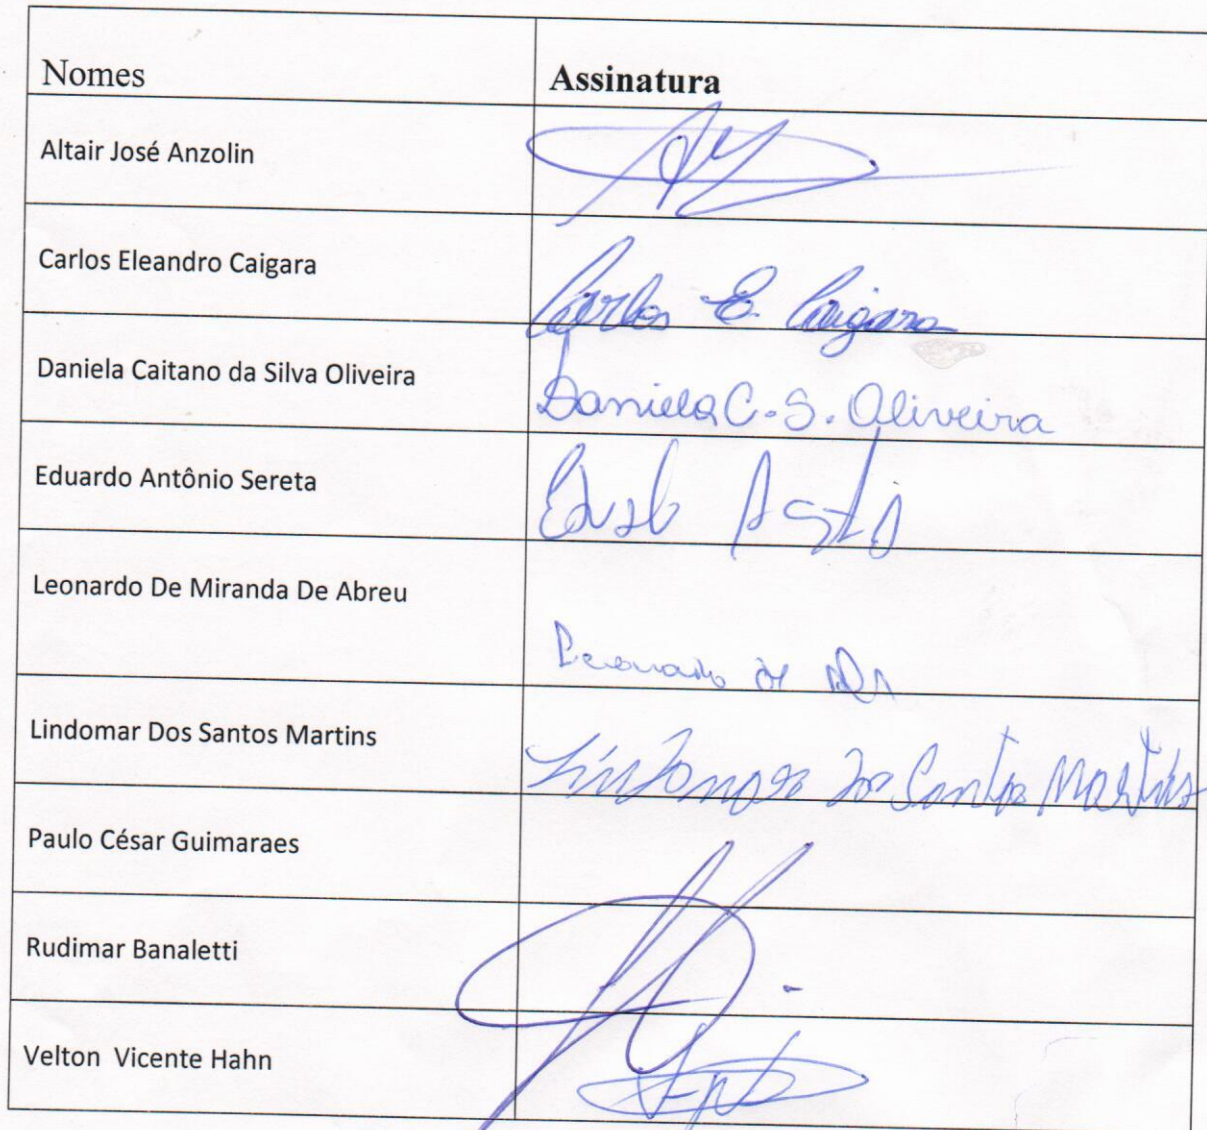 Nomes Assinatura
Altair José Anzolin
Carlos Eleandro Caigara Carlos E. Caigara
Daniela Caitano da Silva Oliveira Daniela C. S. Oliveira
Eduardo Antônio Sereta
Leonardo De Miranda De Abreu Leonardo de
Lindomar Dos Santos Martins Lindomar dos Santos Martins
Paulo César Guimaraes
Rudimar Banaletti
Velton Vicente Hahn